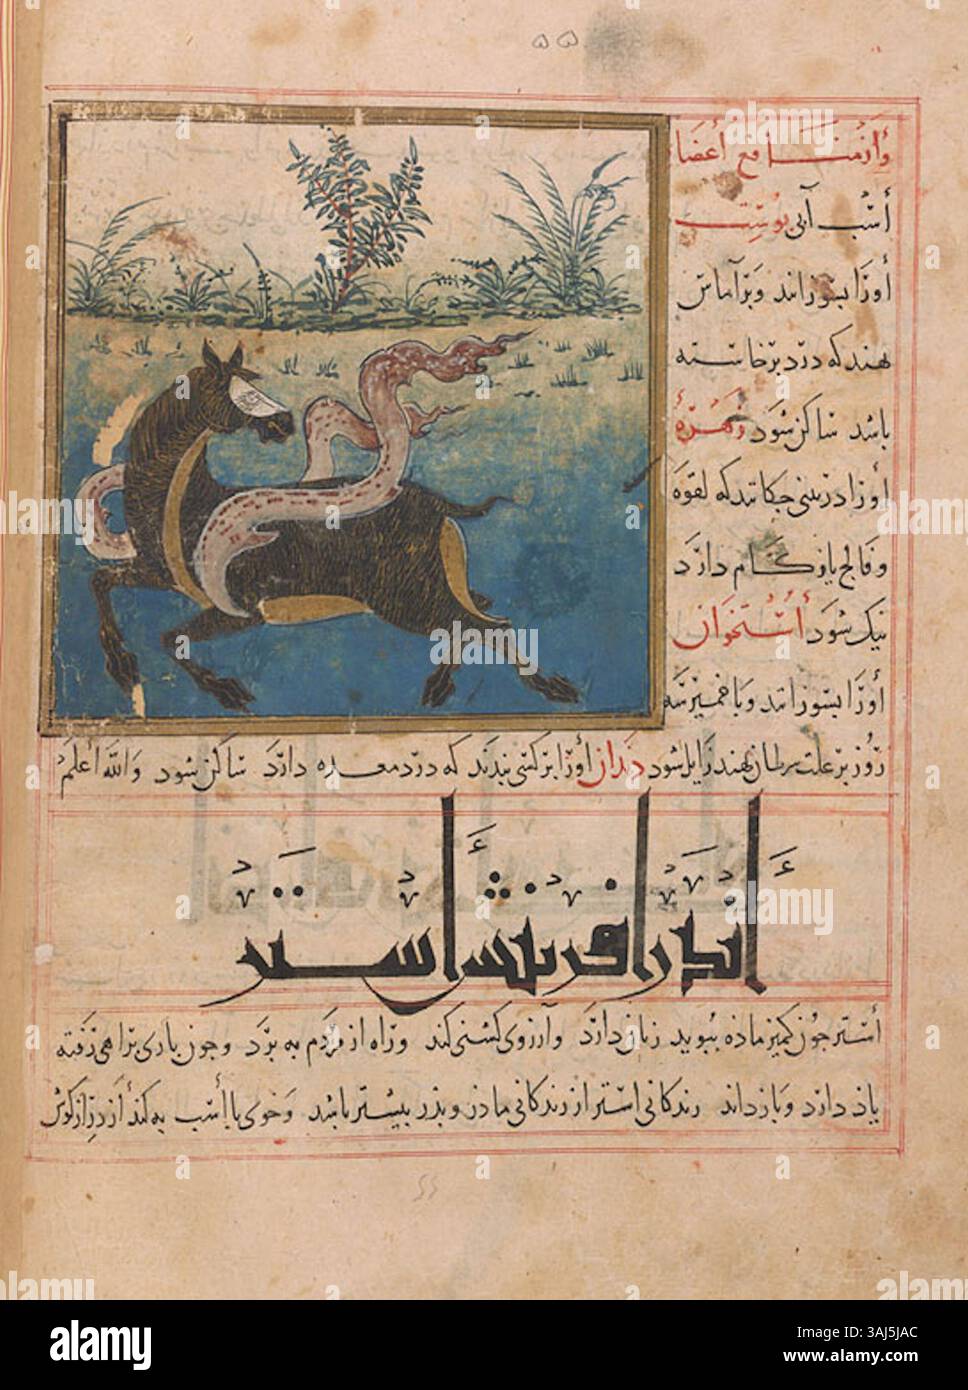 ۵۵
وَاز مَنافع أعضاء
أسْب آبی پوُسْت
أورا بسوزانند وَبرآماس
نهند که دَرد برخاسته
باشد ساکن شود زهرهٔ
أورا در بینی چکانند که لقوَه
وفالج یا زکام دارَد
نیک شود أسْتخوان
أورا بسوزانند وبا خمیر سه
رُوز بر علت سرطان نهند زایل شود دَندان أورا بر کسی بندند که دَرد معده دارَد ساکن شود وَاللهُ أعلمُ
أندر آفرینش أستر
أستر چون کمیز ماده ببوید زیان دارَد وآرزوی گشنی کند وراه از مَردم به بَرد وچون باری برَاهی رَفته
یاد دارَد وباز داند زندگانی استر از زندگانی مادر وپدر بیشتر باشد وَخوی با أسْب به کند أز درازگوش
alamy
Image ID: 3AJ5JAC
www.alamy.com